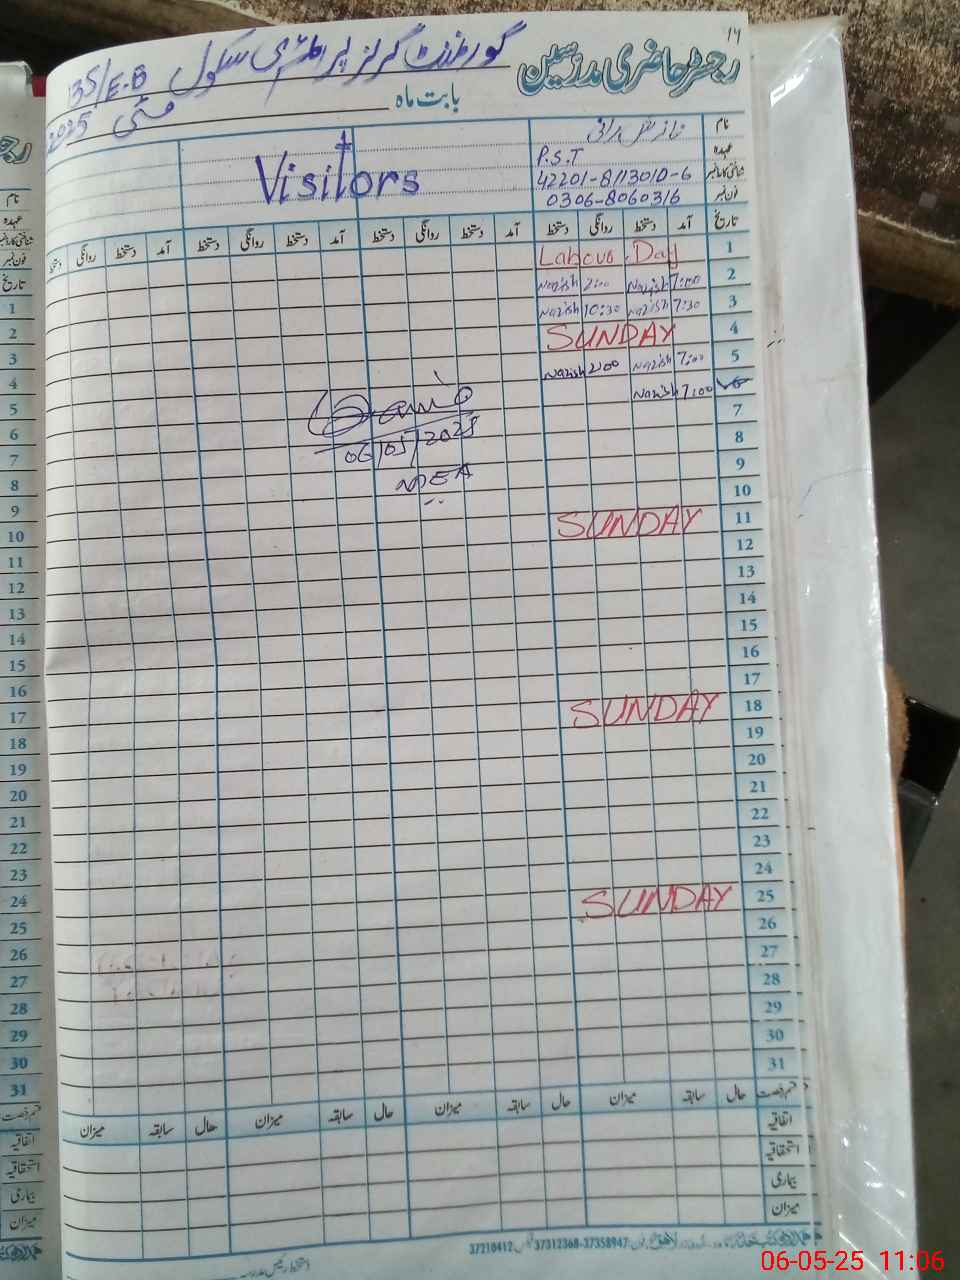 14
رجسٹر حاضری مدرسین
گورنمنٹ گرلز پرائمری سکول 135/E.B
بابت ماہ مئی 2025
نام نازش رانی
عہدہ P.S.T
شناختی کارڈ نمبر 42201-8113010-6
فون نمبر 0306-8060316
Visitors
تاریخ آمد دستخط روانگی دستخط آمد دستخط روانگی دستخط آمد دستخط روانگی دستخط آمد دستخط روانگی دستخط
1 Labour Day
2 7:00 Nazish 2:00 Nazish
3 7:30 Nazish 10:30 Nazish
4 SUNDAY
5 7:00 Nazish 2:00 Nazish
6 7:00 Nazish
7
06/05/2025
MEA
8
9
10
11 SUNDAY
12
13
14
15
16
17
18 SUNDAY
19
20
21
22
23
24
25 SUNDAY
26
27
28
29
30
31
قسم رخصت حال سابقہ میزان حال سابقہ میزان حال سابقہ میزان حال سابقہ میزان
اتفاقیہ
استحقاقیہ
بیماری
میزان
37312368-37358947
37210412
نام
عہدہ
شناختی کارڈ نمبر
فون نمبر
تاریخ
1
2
3
4
5
6
7
8
9
10
11
12
13
14
15
16
17
18
19
20
21
22
23
24
25
26
27
28
29
30
31
قسم رخصت
اتفاقیہ
استحقاقیہ
بیماری
میزان
06-05-25 11:06